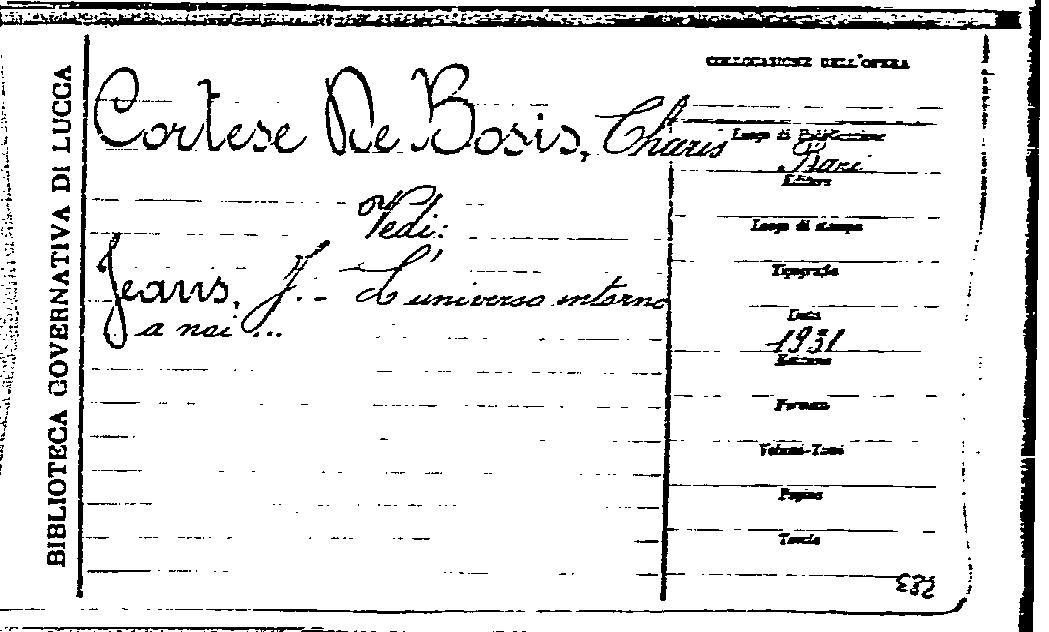 BIBLIOTECA GOVERNATIVA DI LUCCA
Cortese De Bosis, Charis
Vedi:
Jeans, J. - L'universo intorno
a noi ...
COLLOCAZIONE DELL'OPERA
Luogo di Pubblicazione
Bari
Editore
Luogo di stampa
Tipografia
Data
1931
Edizione
Formato
Volumi-Tomi
Pagine
Tavole